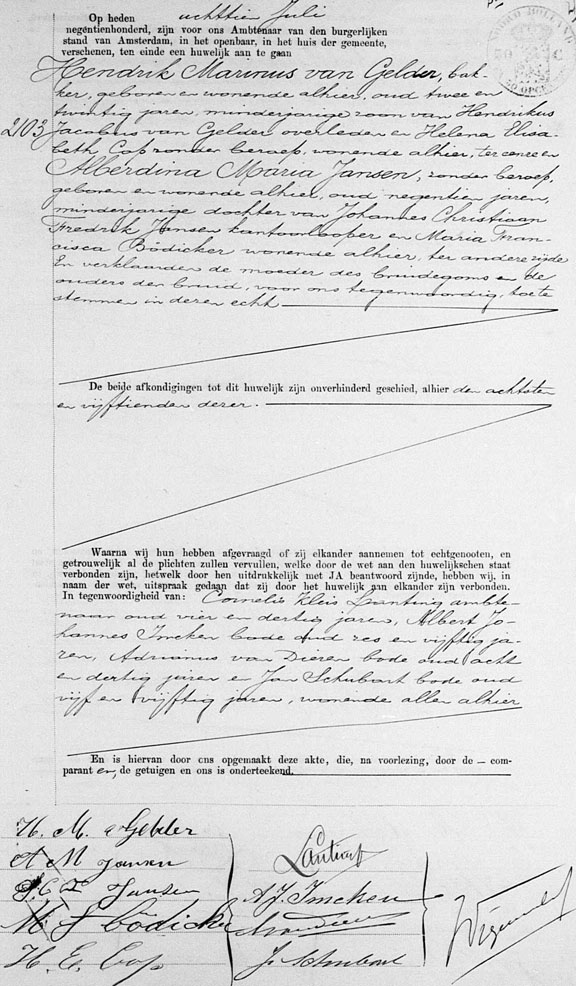 Op heden achttien Juli
negentienhonderd, zijn voor ons Ambtenaar van den burgerlijken
stand van Amsterdam, in het openbaar, in het huis der gemeente,
verschenen, ten einde een huwelijk aan te gaan
Hendrik Marinus van Gelder, bak-
ker, geboren en wonende alhier, oud twee en
twintig jaren, minderjarige zoon van Hendrikus
2103 Jacobus van Gelder overleden en Helena Elisa-
beth Cop zonder beroep, wonende alhier, ter eenre en
Alberdina Maria Jansen, zonder beroep,
geboren en wonende alhier, oud negentien jaren,
minderjarige dochter van Johannes Christiaan
Fredrik Jansen kantoorlooper en Maria Fran-
cisca Bödicker wonende alhier, ter andere zijde
En verklaarden de moeder des bruidegoms en de
ouders der bruid, voor ons tegenwoordig, toe te
stemmen in deren echt
De beide afkondigingen tot dit huwelijk zijn onverhinderd geschied, alhier den achtsten
en vijftienden dezer.
Waarna wij hun hebben afgevraagd of zij elkander aannemen tot echtgenooten, en
getrouwelijk al de plichten zullen vervullen, welke door de wet aan den huwelijkschen staat
verbonden zijn, hetwelk door hen uitdrukkelijk met JA beantwoord zijnde, hebben wij, in
naam der wet, uitspraak gedaan dat zij door het huwelijk aan elkander zijn verbonden.
In tegenwoordigheid van: Cornelis Kleis Lanting ambte-
naar oud vier en dertig jaren, Albert Jo-
hannes Imcken bode oud zes en vijftig ja-
ren, Adrianus van Dieren bode oud acht
en dertig jaren en Jan Schubart bode oud
vijf en vijftig jaren, wonende allen alhier
En is hiervan door ons opgemaakt deze akte, die, na voorlezing, door de — com-
parant en, de getuigen en ons is onderteekend.
H. M. v Gelder
A M Jansen
Lanting
J. C. F. Jansen
A. J. Imcken
M F Bödicker
H. E. Cop
J. Schubart